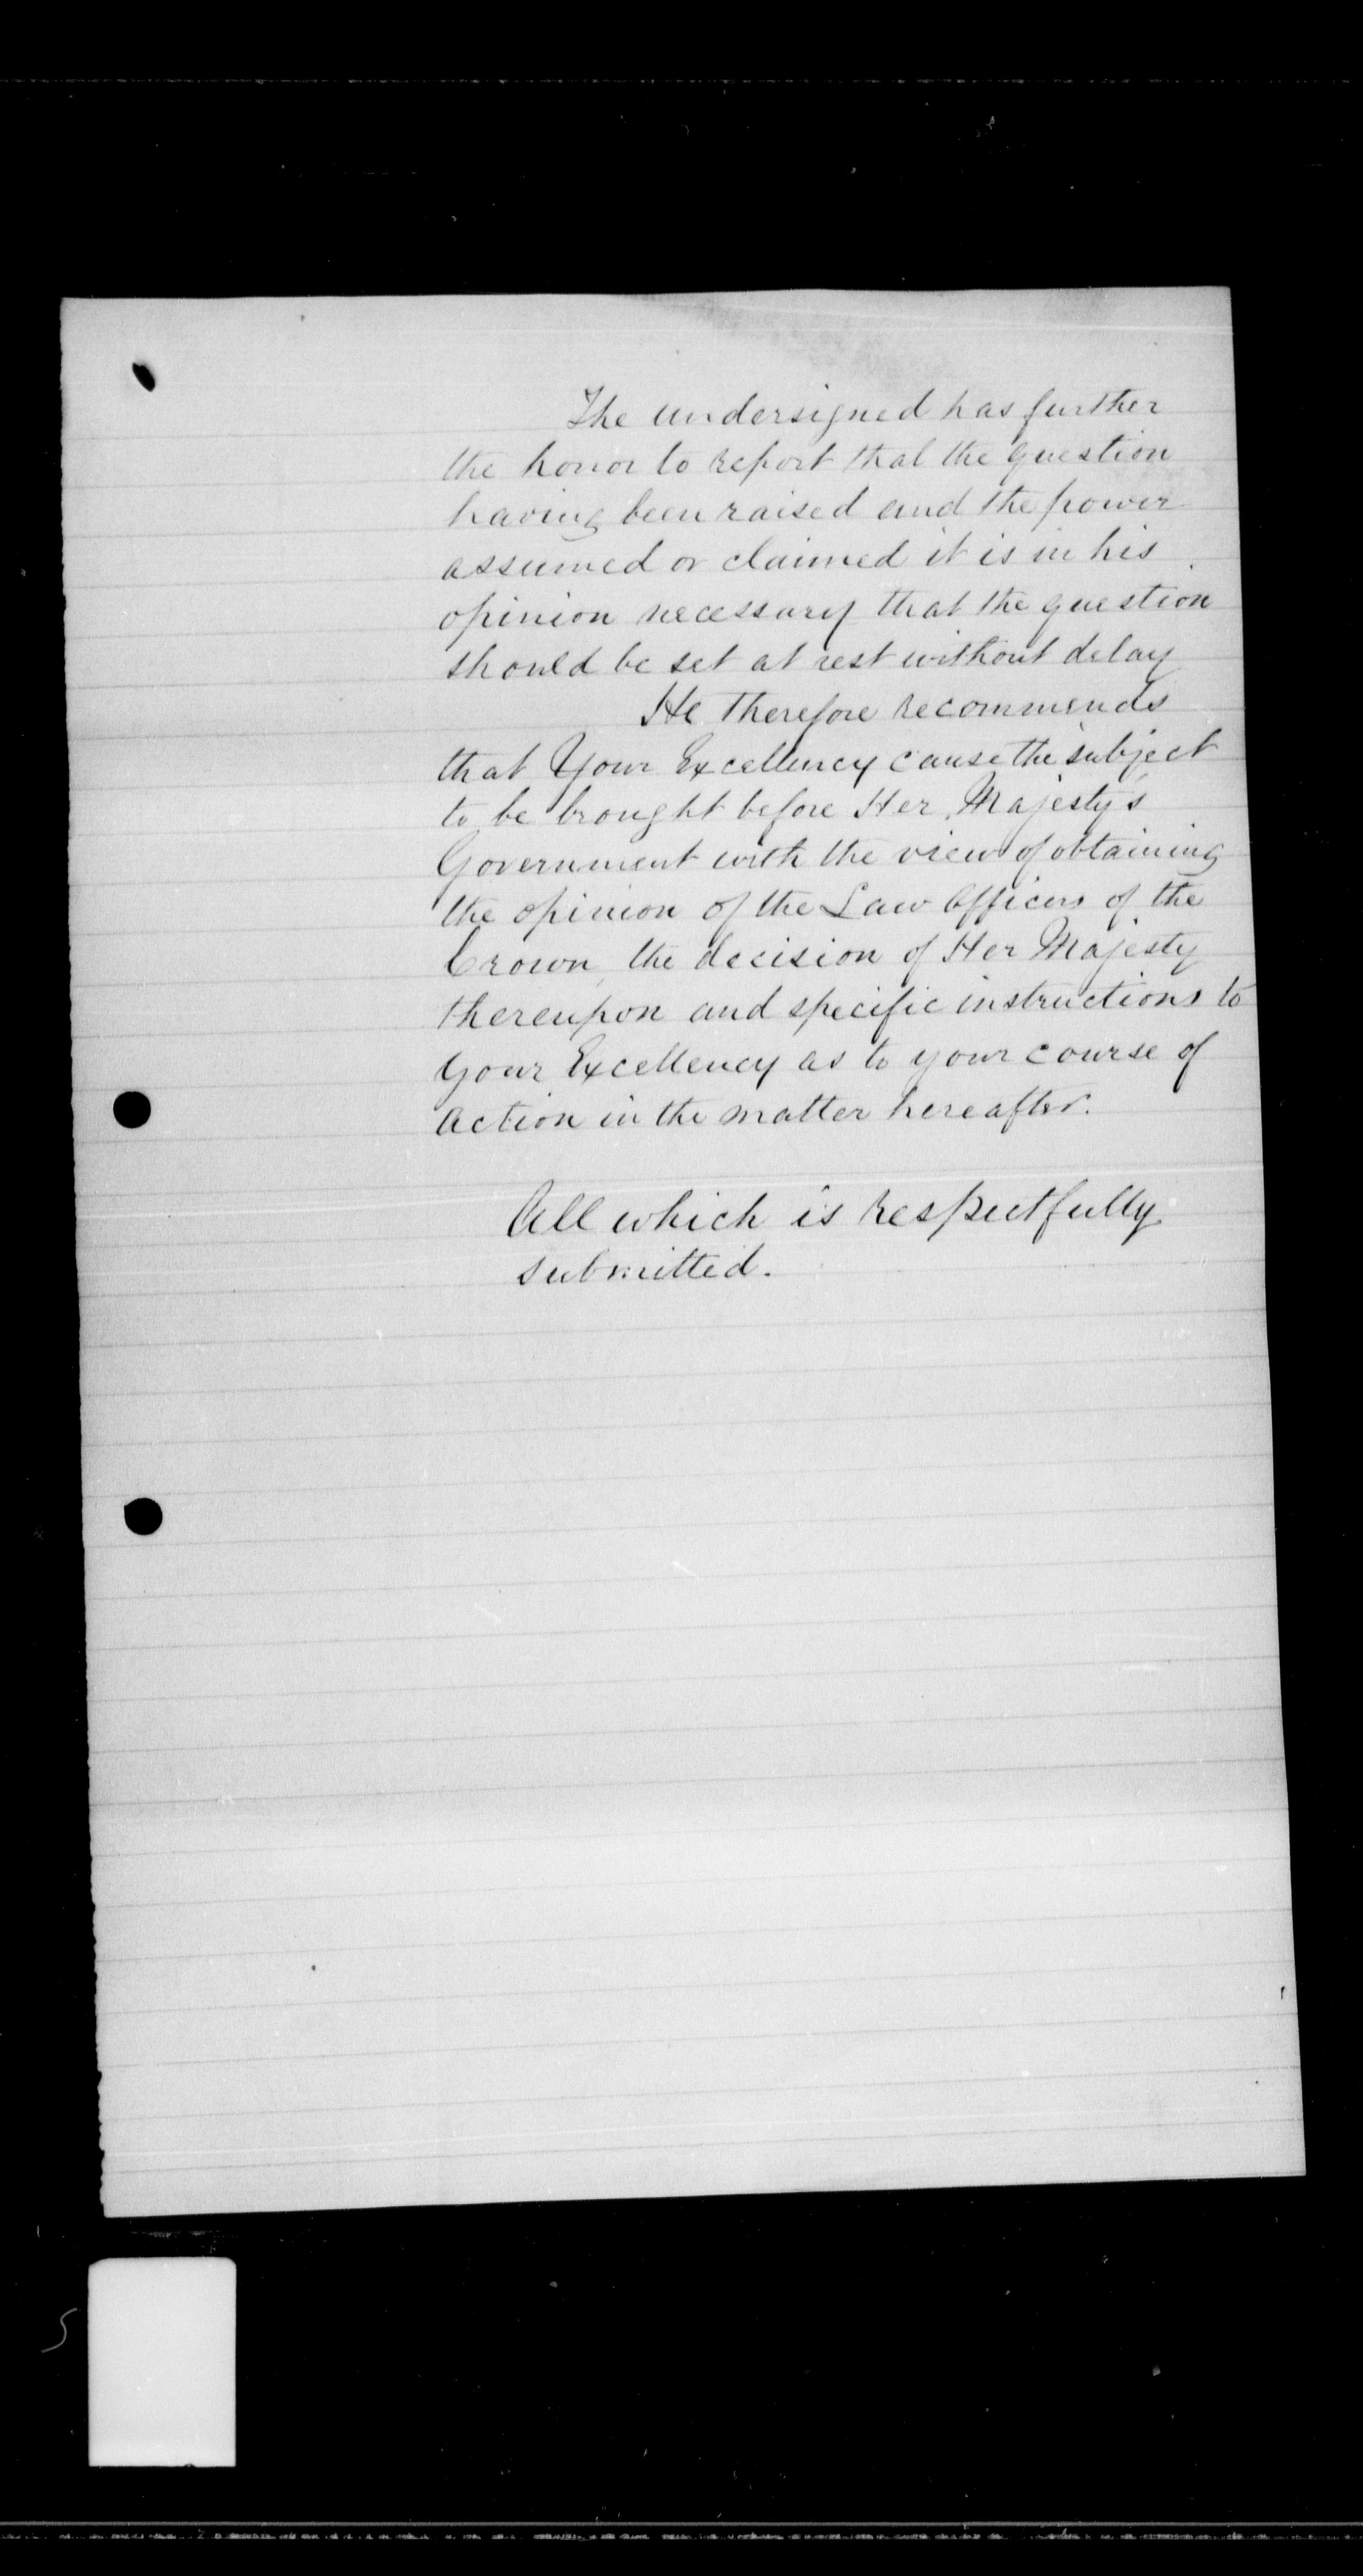 The undersigned has further
the honor to report that the question
having been raised and the power
assumed or claimed it is in his
opinion necessary that the question
should be set at rest without delay
He therefore recommends
that Your Excellency cause the subject
to be brought before Her Majesty's
Government with the view of obtaining
the opinion of the Law Officers of the
Crown, the decision of Her Majesty
thereupon and specific instructions to
Your Excellency as to your course of
action in the matter hereafter.
All which is respectfully
submitted.
5